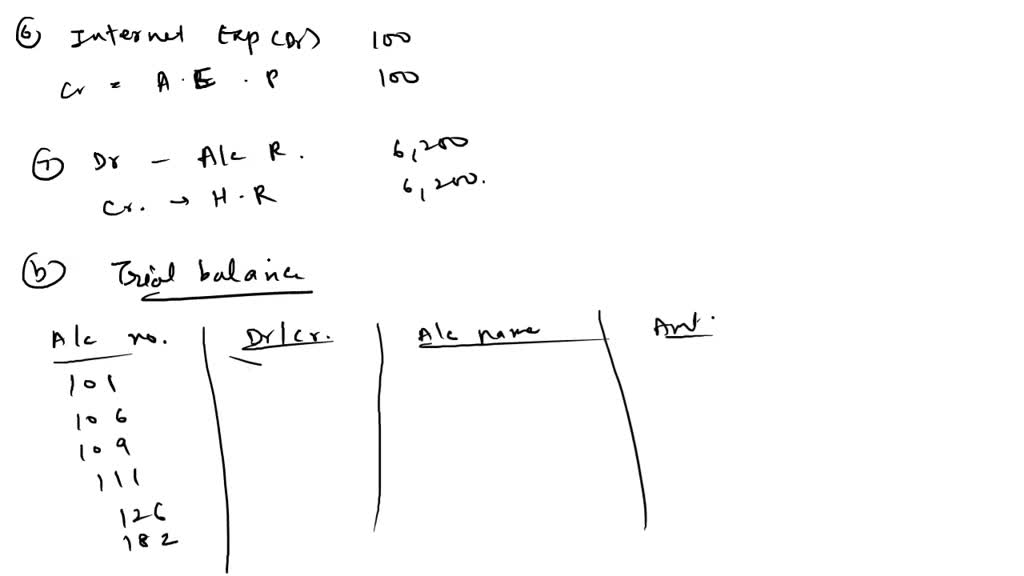 ⑥ Internet Exp (Dr) 100
Cr = A.E.P 100
⑦ Dr - A/c R. 6,200
Cr. → H.R 6,200.
ⓑ Trial balance
A/c no. Dr/Cr. A/c name Amt.
101
106
109
111
126
182